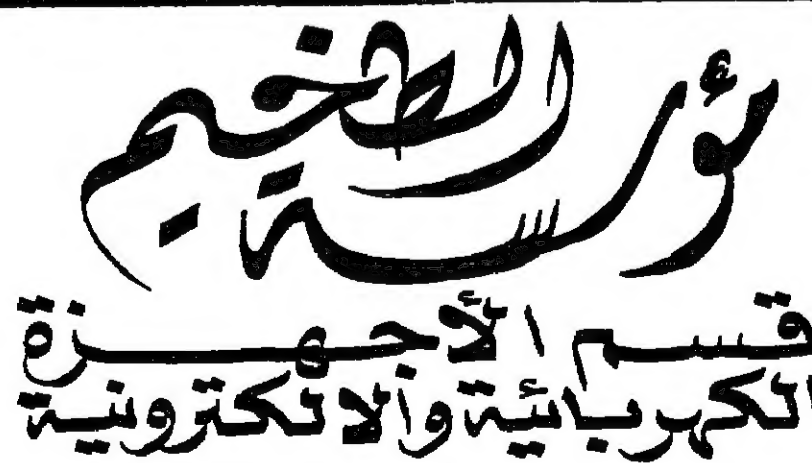 مؤسسة الطخيم
قسم الأجهزة
الكهربائية والالكترونية